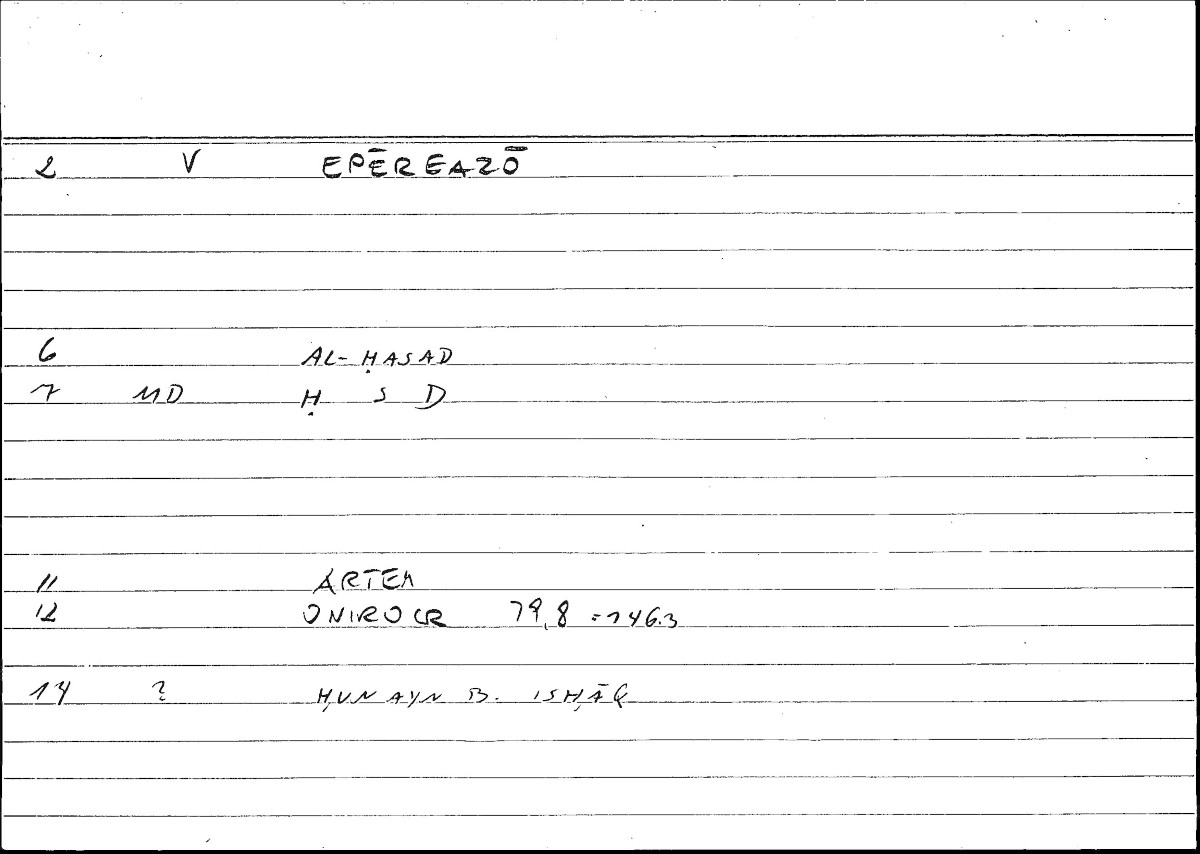 2 V EPĒREAZŌ
6 AL-ḤASAD
7 MD Ḥ S D
11 ARTEM
12 ONIROCR 79,8 = 146.3
14 ? ḤUNAYN B. ISḤĀQ